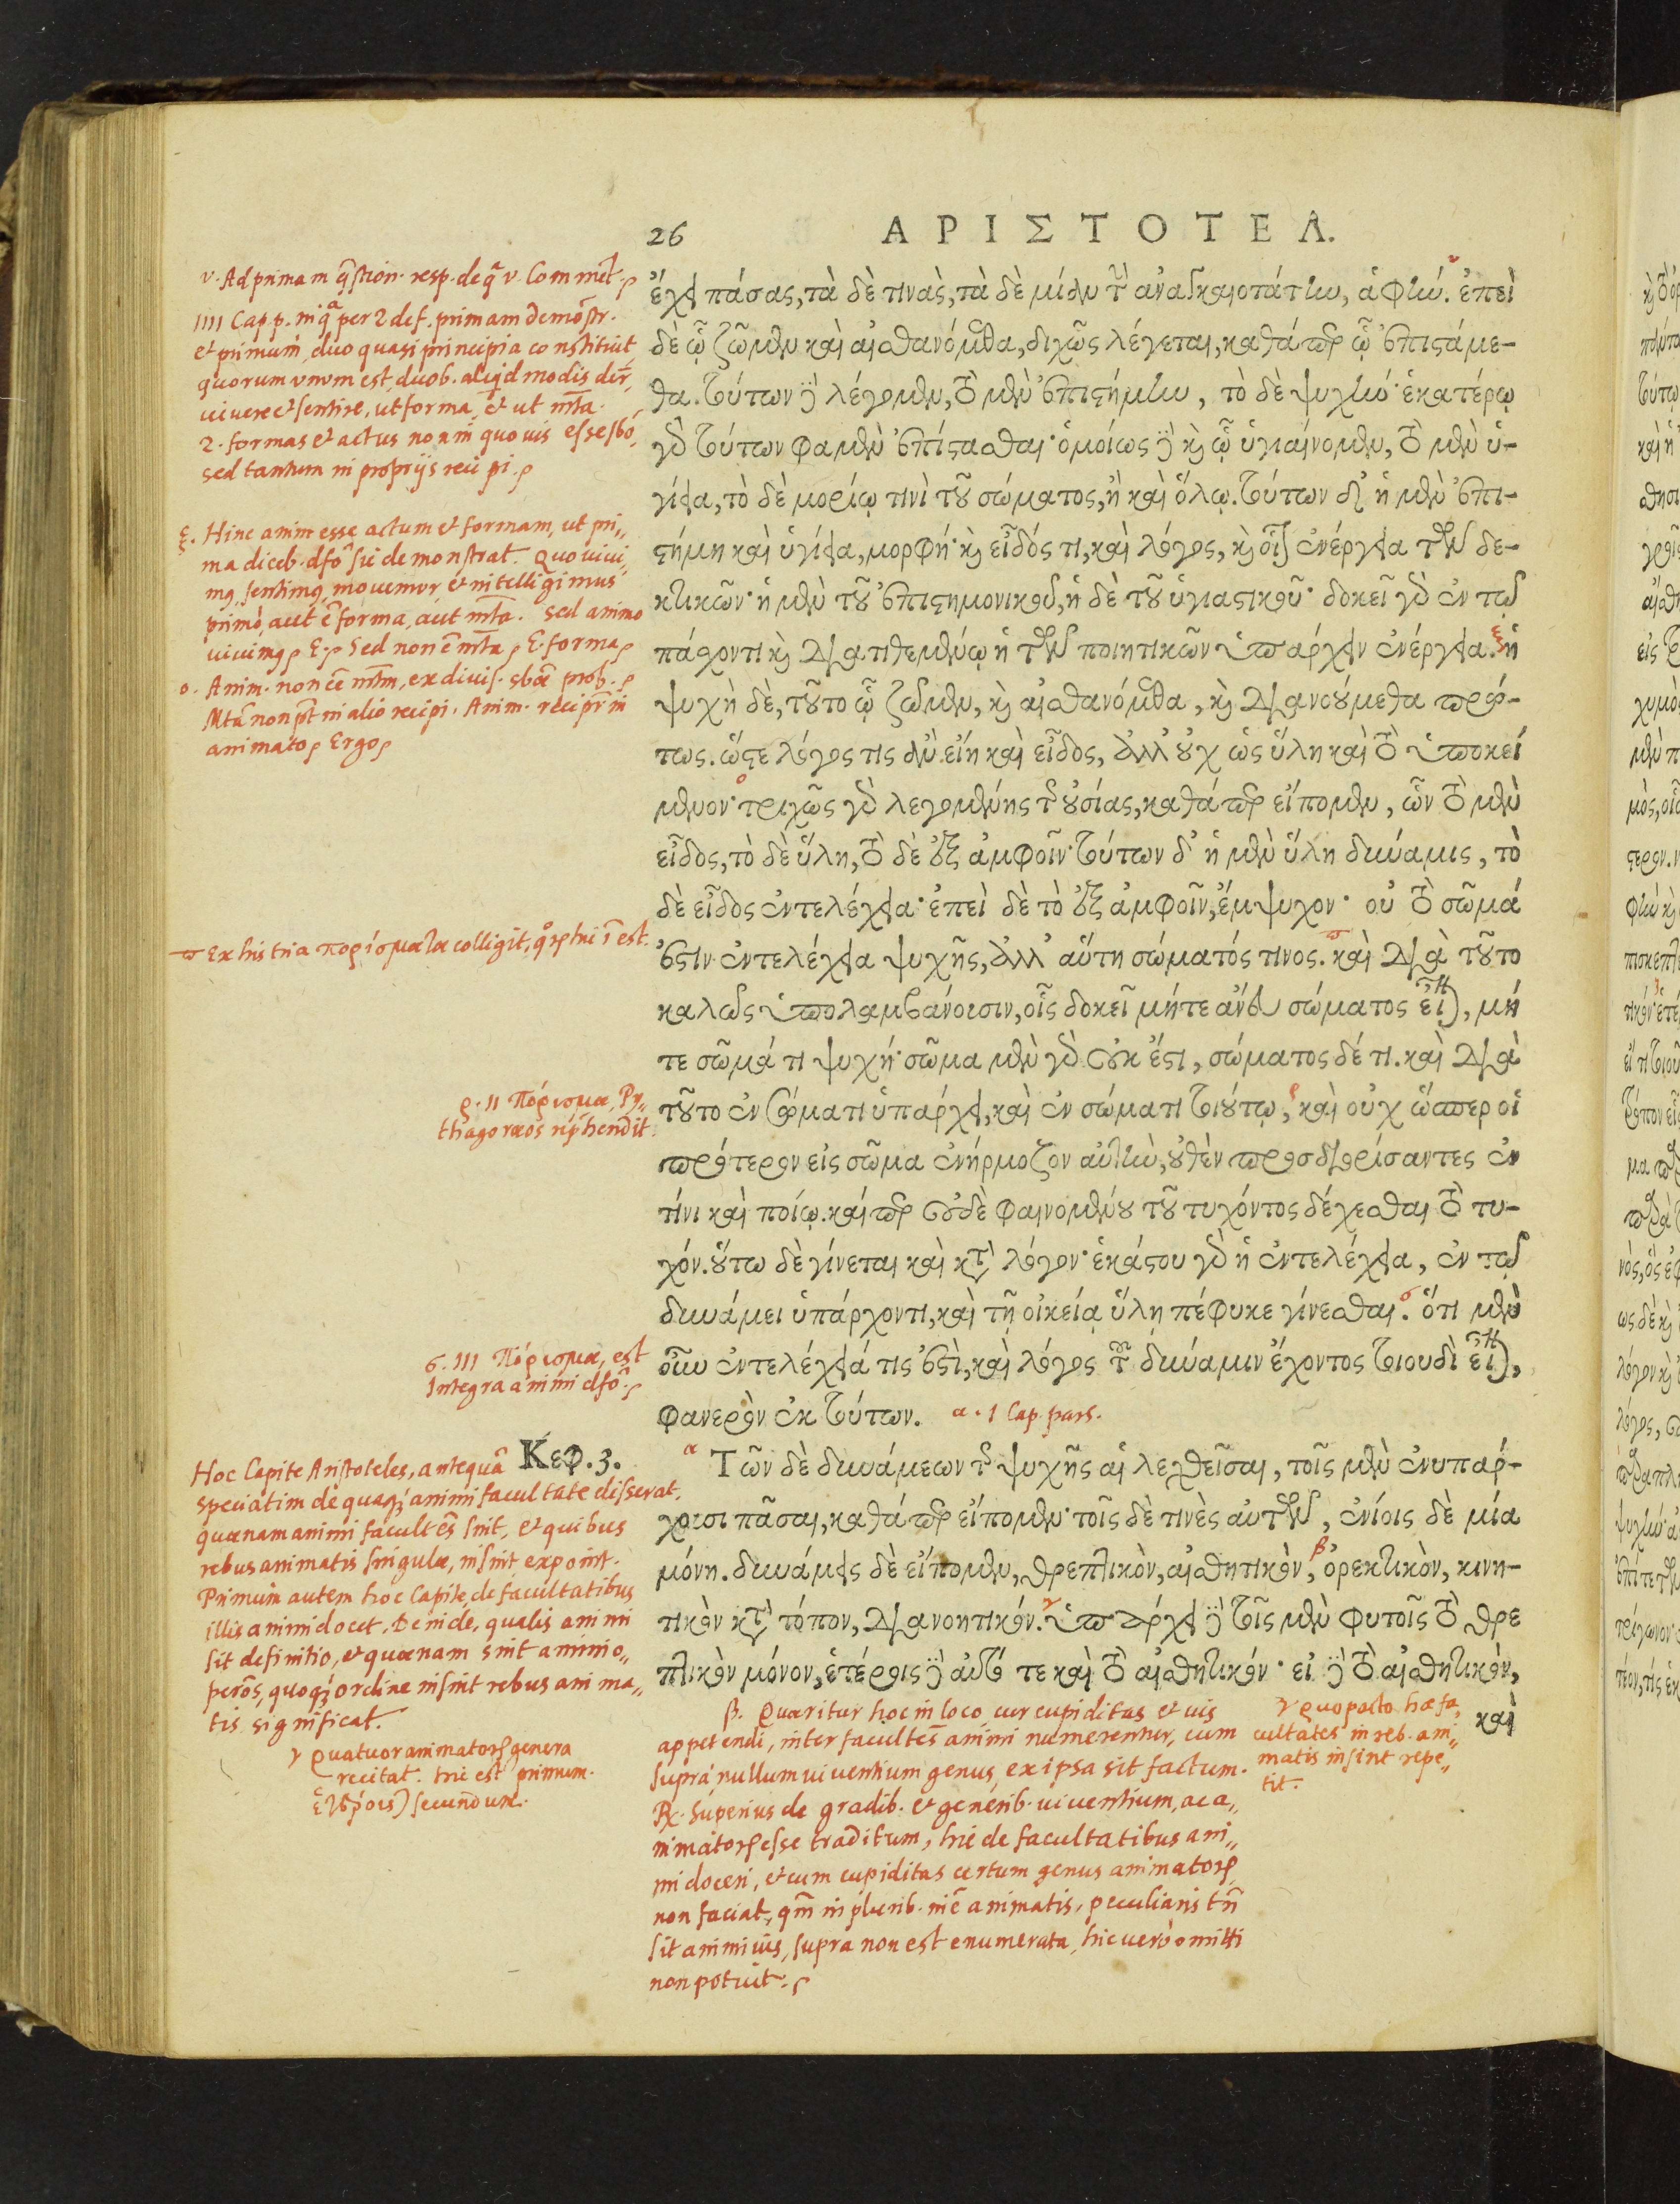 26 ΑΡΙΣΤΟΤΕΛ.
ἔχει πάσας, τὰ δὲ τινὰς, τὰ δὲ μίαν τὴν ἀναγκαιοτάτην, ἁφήν. ἐπεὶ
δὲ ᾧ ζῶμεν καὶ αἰσθανόμεθα, διχῶς λέγεται, καθάπερ ᾧ ἐπιστάμε-
θα. τούτων δὲ λέγομεν, τὸ μὲν ἐπιστήμην, τὸ δὲ ψυχήν· ἑκατέρῳ
γὰρ τούτων φαμὲν ἐπίστασθαι· ὁμοίως δὲ καὶ ᾧ ὑγιαίνομεν, τὸ μὲν ὑ-
γίεια, τὸ δὲ μορίῳ τινὶ τοῦ σώματος, ἢ καὶ ὅλῳ. τούτων δ' ἡ μὲν ἐπι-
στήμη καὶ ὑγίεια, μορφή· καὶ εἶδός τι, καὶ λόγος, καὶ οἷον ἐνέργεια τῶν δε-
κτικῶν· ἡ μὲν τοῦ ἐπιστημονικοῦ, ἡ δὲ τοῦ ὑγιαστικοῦ· δοκεῖ γὰρ ἐν τῷ
πάσχοντι καὶ διατιθεμένῳ ἡ τῶν ποιητικῶν ὑπάρχειν ἐνέργεια. ἡ
ψυχὴ δὲ, τοῦτο ᾧ ζῶμεν, καὶ αἰσθανόμεθα, καὶ διανούμεθα πρώ-
τως. ὥστε λόγος τις ἂν εἴη καὶ εἶδος, ἀλλ' οὐχ ὡς ὕλη καὶ τὸ ὑποκεί
μενον· τριχῶς γὰρ λεγομένης τῆς οὐσίας, καθάπερ εἴπομεν, ὧν τὸ μὲν
εἶδος, τὸ δὲ ὕλη, τὸ δὲ ἐξ ἀμφοῖν· τούτων δ' ἡ μὲν ὕλη δυνάμις, τὸ
δὲ εἶδος ἐντελέχεια· ἐπεὶ δὲ τὸ ἐξ ἀμφοῖν, ἔμψυχον· οὐ τὸ σῶμά
ἐστιν ἐντελέχεια ψυχῆς, ἀλλ' αὕτη σώματός τινος. καὶ διὰ τοῦτο
καλῶς ὑπολαμβάνουσιν, οἷς δοκεῖ μήτε ἄνευ σώματος εἶναι, μή
τε σῶμά τι ψυχή· σῶμα μὲν γὰρ οὐκ ἔστι, σώματος δέ τι. καὶ διὰ
τοῦτο ἐν σώματι ὑπάρχει, καὶ ἐν σώματι τοιούτῳ, καὶ οὐχ ὥσπερ οἱ
πρότερον εἰς σῶμα ἐνήρμοζον αὐτὴν, οὐθὲν προσδιορίσαντες ἐν
τίνι καὶ ποίῳ. καίπερ οὐδὲ φαινομένου τοῦ τυχόντος δέχεσθαι τὸ τυ-
χόν. οὕτω δὲ γίνεται καὶ κατὰ λόγον· ἑκάστου γὰρ ἡ ἐντελέχεια, ἐν τῷ
δυνάμει ὑπάρχοντι, καὶ τῇ οἰκείᾳ ὕλῃ πέφυκε γίνεσθαι. ὅτι μὲν
οὖν ἐντελέχειά τις ἐστὶ, καὶ λόγος τοῦ δύναμιν ἔχοντος τοιουδὶ εἶναι,
φανερὸν ἐκ τούτων. α. 1 Cap. pars.
Κεφ. 3. Τῶν δὲ δυνάμεων τῆς ψυχῆς αἱ λεχθεῖσαι, τοῖς μὲν ἐνυπάρ-
χουσι πᾶσαι, καθάπερ εἴπομεν· τοῖς δὲ τινὲς αὐτῶν, ἐνίοις δὲ μία
μόνη. δυνάμεις δὲ εἴπομεν, θρεπτικὸν, αἰσθητικὸν, ὀρεκτικὸν, κινη-
τικὸν κατὰ τόπον, διανοητικόν. ὑπάρχει δὲ τοῖς μὲν φυτοῖς τὸ θρε
πτικὸν μόνον, ἑτέροις δὲ αὐτό τε καὶ τὸ αἰσθητικόν· εἰ δὲ τὸ αἰσθητικὸν,
καὶ
ν. Ad primam q̃stion. resp. de q̃ ν. Com̃met.
IIII Cap. p. in q̃ per 2 def. primam demõstr.
et primum, duo quasi principia constituit,
quorum unum est, duob. aliqd modis dr̃,
vivere et sentire, ut forma, et ut mt̃a.
2. formas et actus non in quovis esse sbo,
sed tantum in propriis recipi.
ξ. Hinc anim̃ esse actum et formam, ut pri„
ma diceb. dfõ sic demonstrat. Quo vivi„
mq, sentimq, movemur et intelligimus
primò, aut ẽ forma, aut mt̃a. Sed animo
vivimq. E. Sed non ẽ mt̃a. E. forma
ο. Anim. non ẽ mt̃m, ex divis. sbæ prob.
Mt̃a non pt̃ in alio recipi. Anim. recipr̃ in
animato. Ergo
ϖ Ex his tria πορίσματα colligit, est.
ρ. II Πόρισμα, Py„
thagoraeos rep̃hendit.
σ. III Πόρισμα, est
Integra animi dfõ.
Hoc Capite Aristoteles, antequã
speciatim de quaq; animi facultate disserat,
quænam animi facultẽs sint, et quibus
rebus animatis singulæ, insint, exponit.
Primùm autem hoc Capite, de facultatibus
illis animi docet. Deinde, qualis animi
sit definitio, et quænam sint animi o„
perõs, quoq; ordine insint rebus anima„
tis significat.
γ Quatuor animatorum genera
recitat. hic est primum.
ἑτέροις) secundum.
β. Quæritur hoc in loco cur cupiditas et vis
appetendi, inter facultẽs animi numerentur, cum
suprà nullum viventium genus, ex ipsa sit factum.
Rx. Superius de gradib. et generib. viventium, ac a„
nimatorum esse traditum, hic de facultatibus ani„
mi doceri, et cum cupiditas certum genus animatorum
non faciat, qm̃ in plurib. inẽ animatis, peculiaris tñ
sit animi vis, supra non est enumerata, hic verò omitti
non potuit.
γ Quo pacto hæ fa„
cultates in reb. ani„
matis insint repe„
tit.